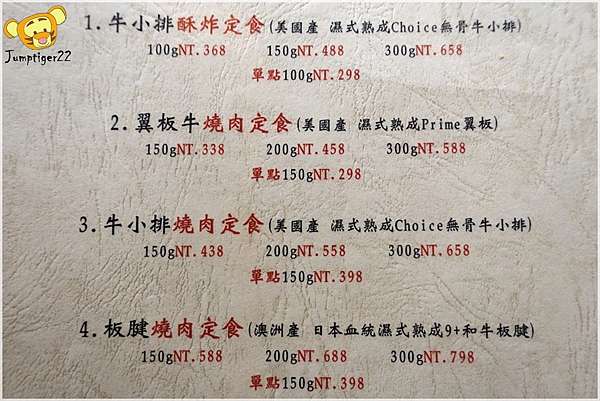 Jumptiger22
1.牛小排酥炸定食(美國產 濕式熟成Choice無骨牛小排)
100gNT.368 150gNT.488 300gNT.658
單點100gNT.298
2.翼板牛燒肉定食(美國產 濕式熟成Prime翼板)
150gNT.338 200gNT.458 300gNT.588
單點150gNT.298
3.牛小排燒肉定食(美國產 濕式熟成Choice無骨牛小排)
150gNT.438 200gNT.558 300gNT.658
單點150gNT.398
4.板腱燒肉定食(澳洲產 日本血統濕式熟成9+和牛板腱)
150gNT.588 200gNT.688 300gNT.798
單點150gNT.398